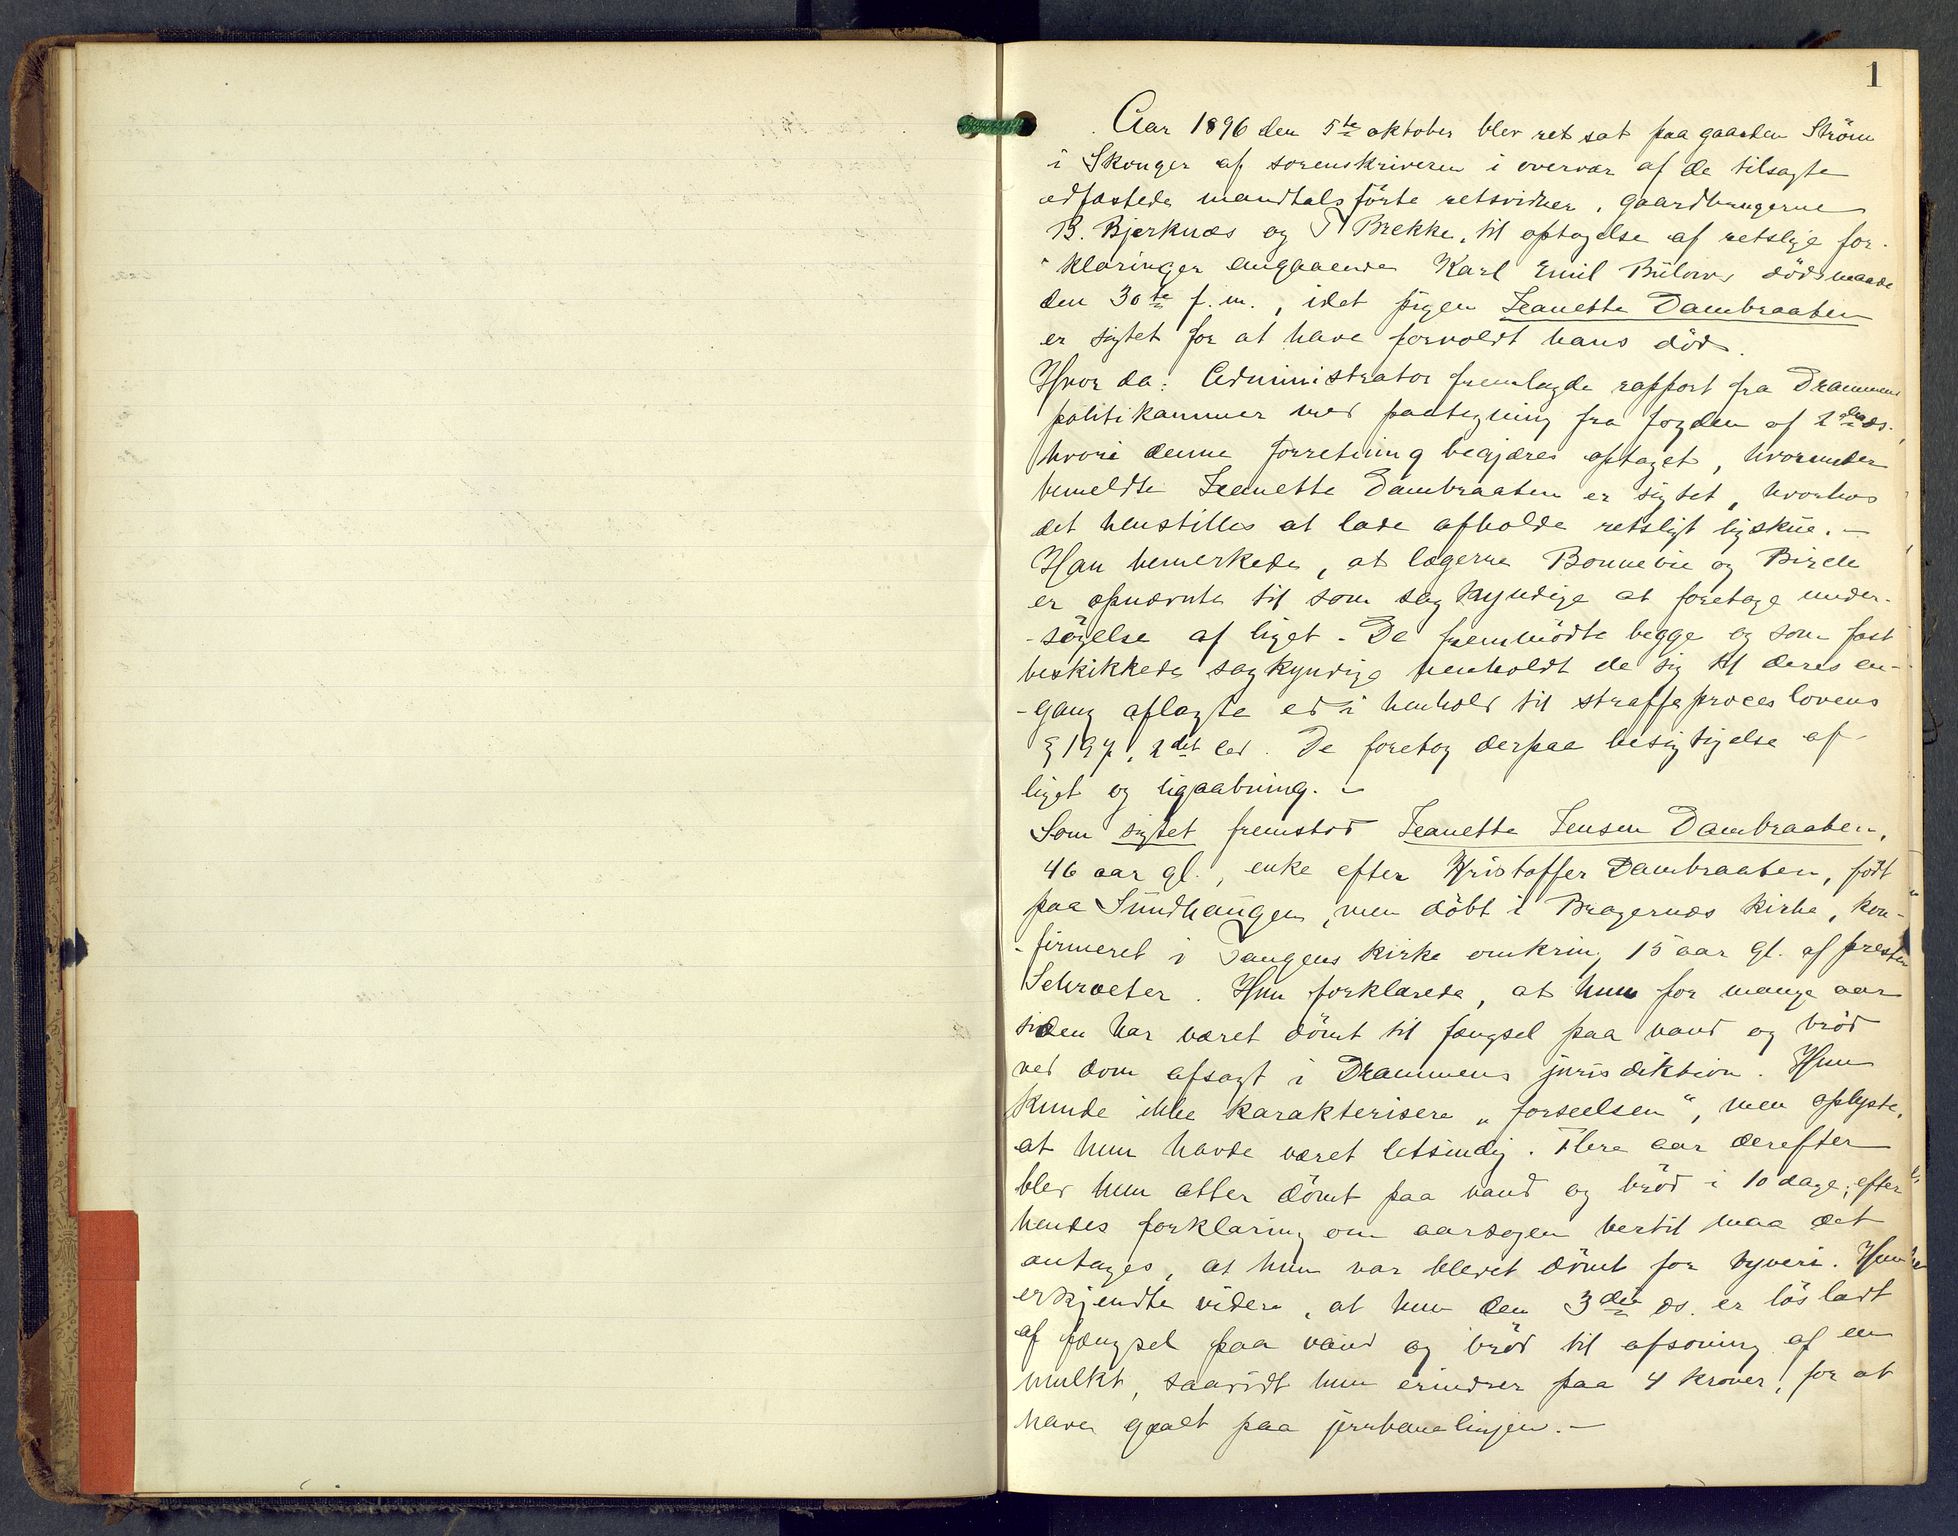 1
Aar 1896 den 5te oktober blev ret sat paa gaarden Ström
i Skouger af sorenskriveren i overvær af de tilsagte
edfæstede mandtalsförte retsvidner, gaardbrugerne
B. Bjerknæs og T Brekke, til optagelse af retslige for-
-klaringer angaaende Karl Emil Bülows dödsmaade
den 30te f. m., idet pigen Jeanette Dambraaten
er sigtet for at have forvoldt hans död.
Hvor da: Administrator fremlagde rapport fra Drammens
politikammer med paategning fra fogden af 2den ds.,
hvori denne forretning begjæres optaget, hvorunder
bemeldte Jeanette Dambraaten er sigtet, hvorhos
det henstilles at lade afholde retsligt ligskue. -
Han bemerkede, at lægerne Bonnevie og Birch
er opnævnte til som sagkyndige at foretage under-
-sögelse af liget. De fremmödte begge og som fast
beskikkede sagkyndige henholdt de sig til deres en-
-gang aflagte ed i henhold til straffeproceslovens
§ 197, 2det led. De foretog derpaa besigtigelse af
liget og ligaabning. -
Som sigtet fremstod Jeanette Jensen Dambraaten,
46 aar gl., enke efter Kristoffer Dambraaten, födt
paa Sundhaugen, men döbt i Bragernæs kirke, kon-
-firmeret i Tangens kirke omkring 15 aar gl. af presten
Schroeter. Hun forklarede, at hun for mange aar
siden har været dömt til fængsel paa vand og bröd
ved dom afsagt i Drammens jurisdiktion. Hun
kunde ikke karakterisere "forseelsen", men oplyste,
at hun havde været letsindig. Flere aar derefter
blev hun atter dömt paa vand og bröd i 10 dage; efter
hendes forklaring om aarsagen hertil maa det
antages, at hun var blevet dömt for tyveri. Hun
erkjendte videre, at hun den 3die ds. er lösladt
af fængsel paa vand og bröd til afsoning af en
mulkt, saavidt hun erindrer paa 4 kroner, for at
have gaaet paa jernbanelinjen. -